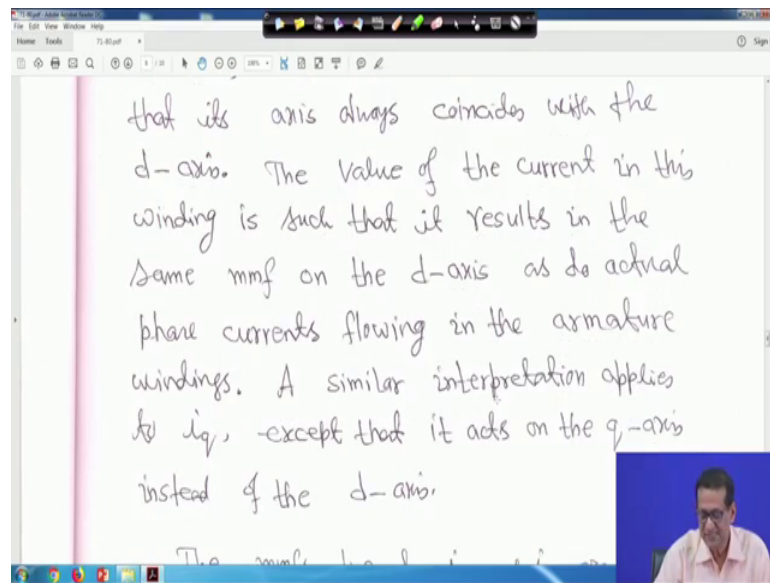 71-80.pdf - Adobe Acrobat Reader DC
File Edit View Window Help
Home Tools 71-80.pdf × Sign
that its axis always coincides with the
d-axis. The value of the current in this
winding is such that it results in the
same mmf on the d-axis as do actual
phase currents flowing in the armature
windings. A similar interpretation applies
to iq, except that it acts on the q-axis
instead of the d-axis.
The mmfs